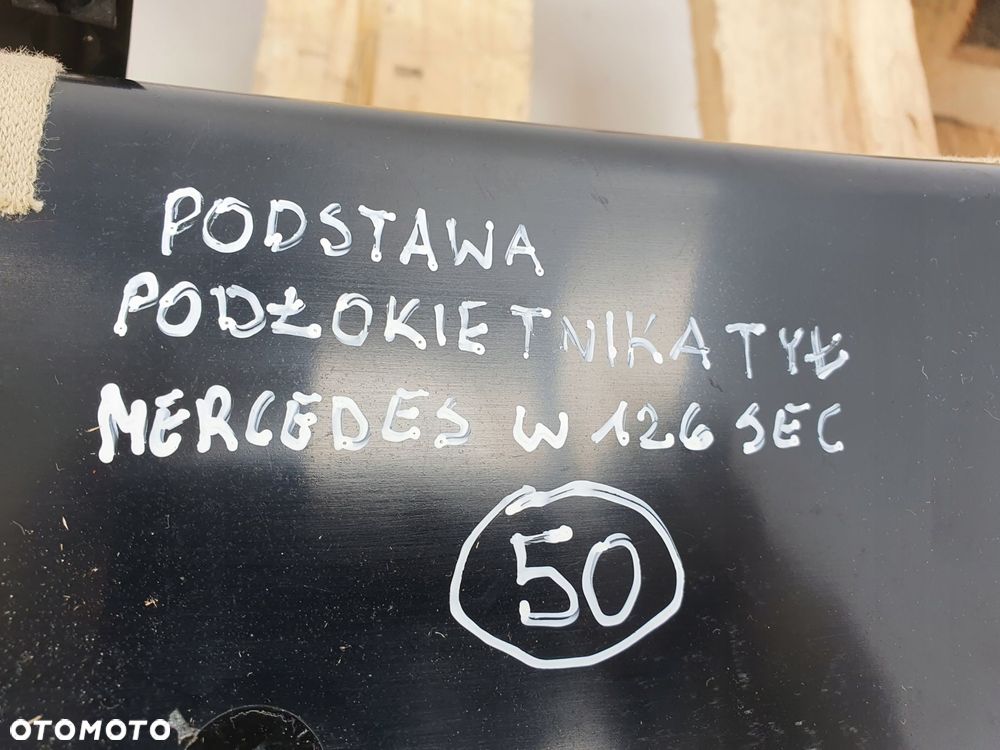 PODSTAWA
PODŁOKIETNIKA TYŁ
MERCEDES W 126 SEC
50
OTOMOTO